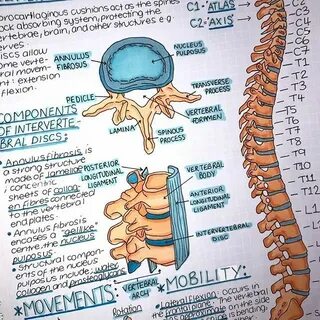 brocartilaginous cushions act as the spines
ock absorbing system, protecting the
vertebrae, brain, and other structures e.g
erves
iscs allow
ome verte-
ral movem-
nt: extension
flexion.
C1 = "ATLAS"
C2 = "AXIS"
ANNULUS
FIBROSUS
NUCLEUS
PULPOSUS
PEDICLE
TRANSVERSE
PROCESS
VERTEBRAL
FORAMEN
LAMINA
SPINOUS
PROCESS
COMPONENTS
OF INTERVERTE-
BRAL DISCS:
• Annulus fibrosis is
a strong structure
made of lamellae
; concentric
sheets of collag-
en fibres connected
to the vertebral
end plates.
• Annulus fibrosis
encases a "gel like"
centre; the nucleus
pulposus.
• Structural compon-
ents of the nucleus
pulposus include: water,
collagen and proteoglycans
POSTERIOR
LONGITUDINAL
LIGAMENT
VERTEBRAL
BODY
ANTERIOR
LONGITUDINAL
LIGAMENT
INTERVERTEBRAL
DISC
VERTEBRAL
ARCH
*MOVEMENTS:
Rotation
*MOBILITY:
• Lateral flexion: occurs in
the frontal plane. The vertebral
on the side
is bending.
C7
T1
T2
T3
T4
T5
T6
T7
T8
T9
T10
T11
T12
L1